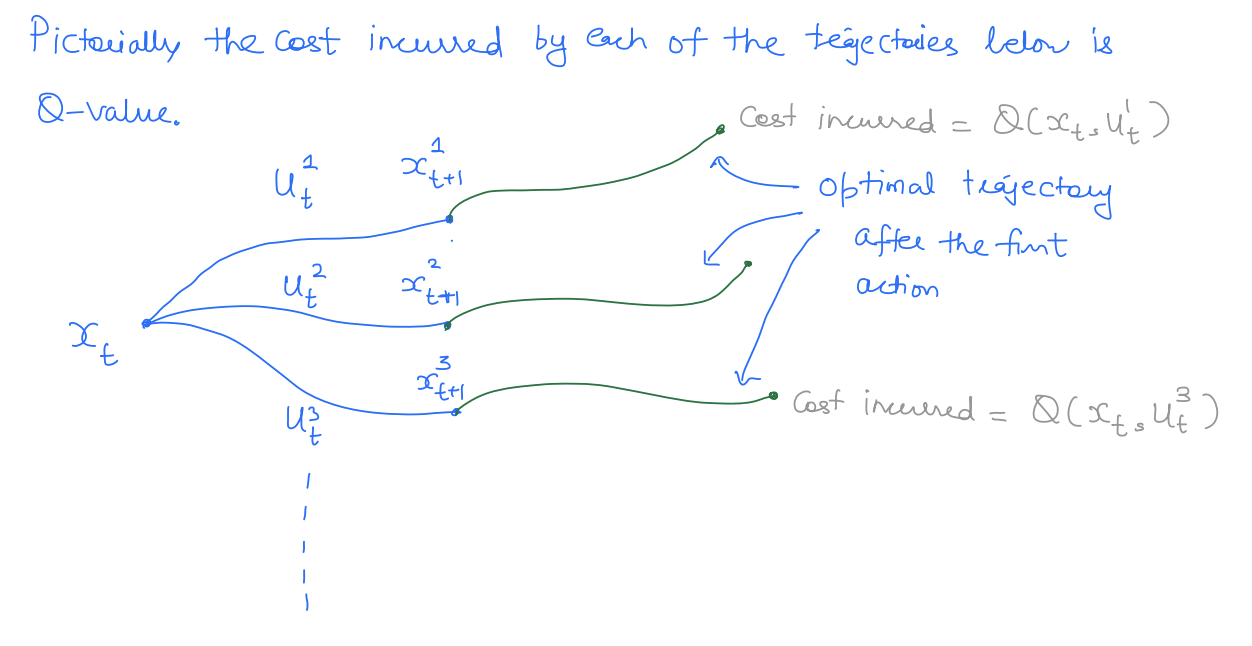 Pictorially the cost incurred by each of the trajectories below is
Q-value.
Cost incurred = Q(x_t, u_t^1)
u_t^1
x_{t+1}^1
optimal trajectory
after the first
action
u_t^2
x_{t+1}^2
x_t
x_{t+1}^3
u_t^3
Cost incurred = Q(x_t, u_t^3)